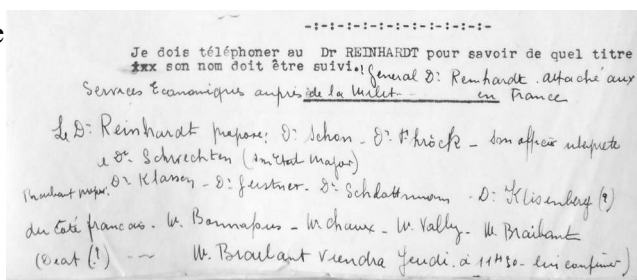 e
-:-:-:-:-:-:-:-:-:-:-:-
Je dois téléphoner au Dr REINHARDT pour savoir de quel titre
son nom doit être suivi. General Dr Reinhardt attaché aux
Services Economiques auprès de la Milit en France
Le Dr Reinhardt propose: Dr Schon - Dr - son officier
Dr Schwechten (son Etat Major)
Dr Klassen - Dr Gerstner - Dr - Dr Klisenberg (?)
du côté français - M. Bonnafous - M - M. - M. Braibant
(Deat (!) M. Braibant viendra Jeudi à 11H30 - confirmer)